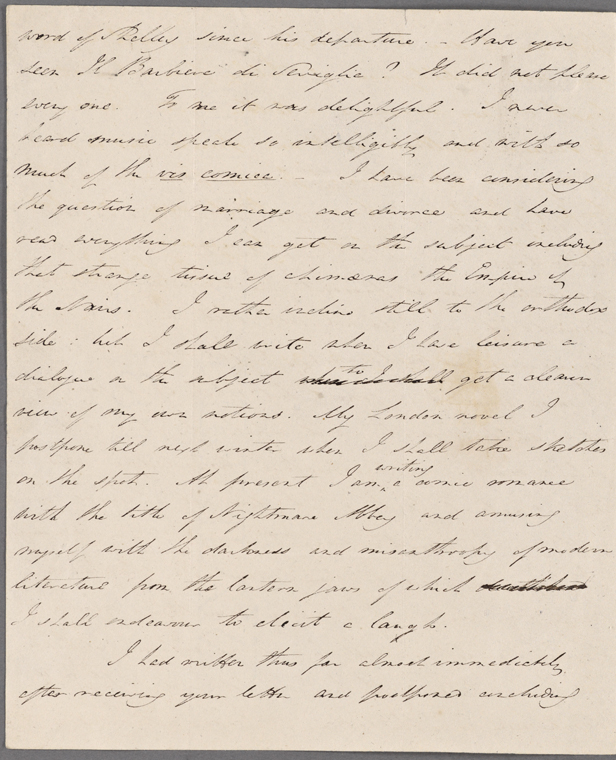 word of Shelley since his departure. – Have you
seen Il Barbiere di Seviglia? It did not please
every one. To me it was delightful. I never
heard music speak so intelligibly and with so
much of the vis comica. – I have been considering
the question of marriage and divorce and have
read everything I can get on the subject including
that strange tissue of chimæras the Empire of
the Nairs. I rather incline still to the orthodox
side: but I shall write when I have leisure a
dialogue on the subject to get a clearer
view of my own notions. My London novel I
postpone till next winter when I shall take sketches
on the spot. At present I am writing a comic romance
with the title of Nightmare Abbey and amusing
myself with the darkness and misanthropy of modern
literature from the lantern jaws of which
I shall endeavour to elicit a laugh.
I had written thus far almost immediately
after receiving your letter and postponed concluding